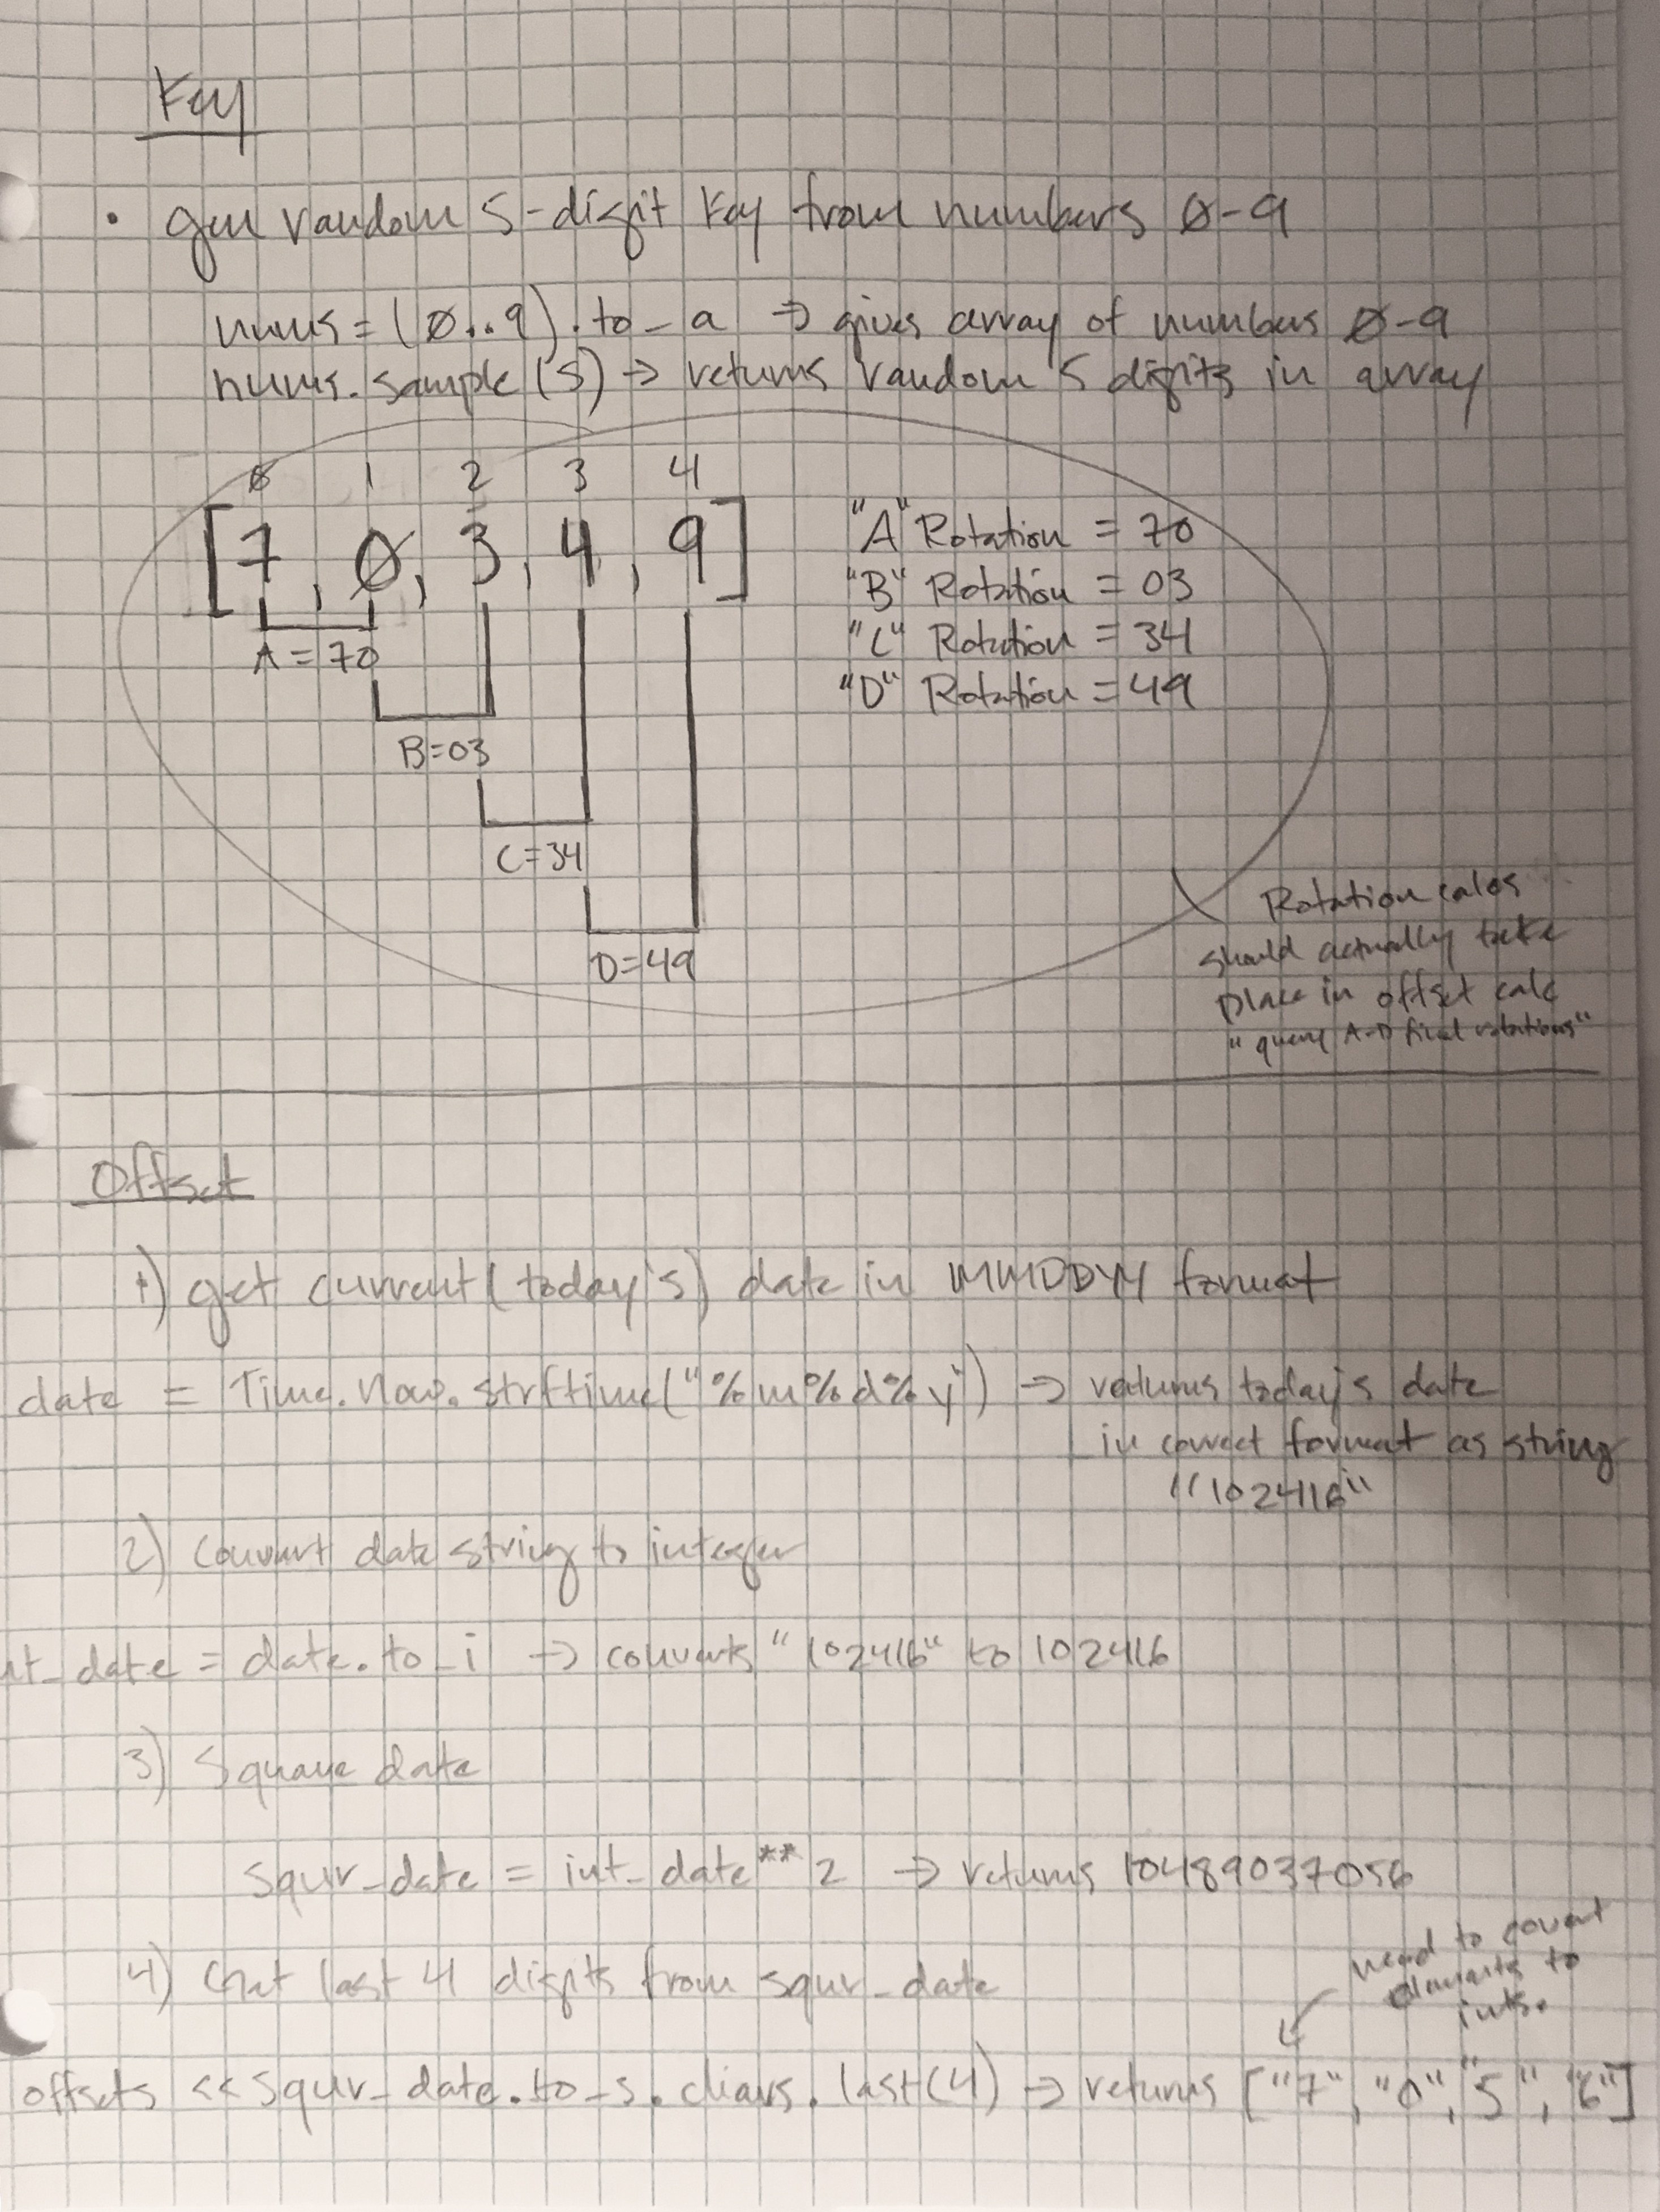 Key
• gen random 5-digit key from numbers 0-9
nums = (0..9).to_a → gives array of numbers 0-9
nums.sample(5) → returns random 5 digits in array
0 1 2 3 4
[7, 0, 3, 4, 9]
A = 70
B=03
C=34
D=49
"A" Rotation = 70
"B" Rotation = 03
"C" Rotation = 34
"D" Rotation = 49
Rotation calcs
should actually take
place in offset calc
"query A-D final rotations"
Offset
1) get current (today's) date in MMDDYY format
date = Time.now.strftime("%m%d%y") → returns today's date
in correct format as string
"102416"
2) Convert date string to integer
nt_date = date.to_i → converts "102416" to 102416
3) Square date
squr_date = int_date ** 2 → returns 10489037056
4) Get last 4 digits from squr_date
need to covert
elements to
ints.
offsets << squr_date.to_s.chars.last(4) → returns ["7", "0", "5", "6"]